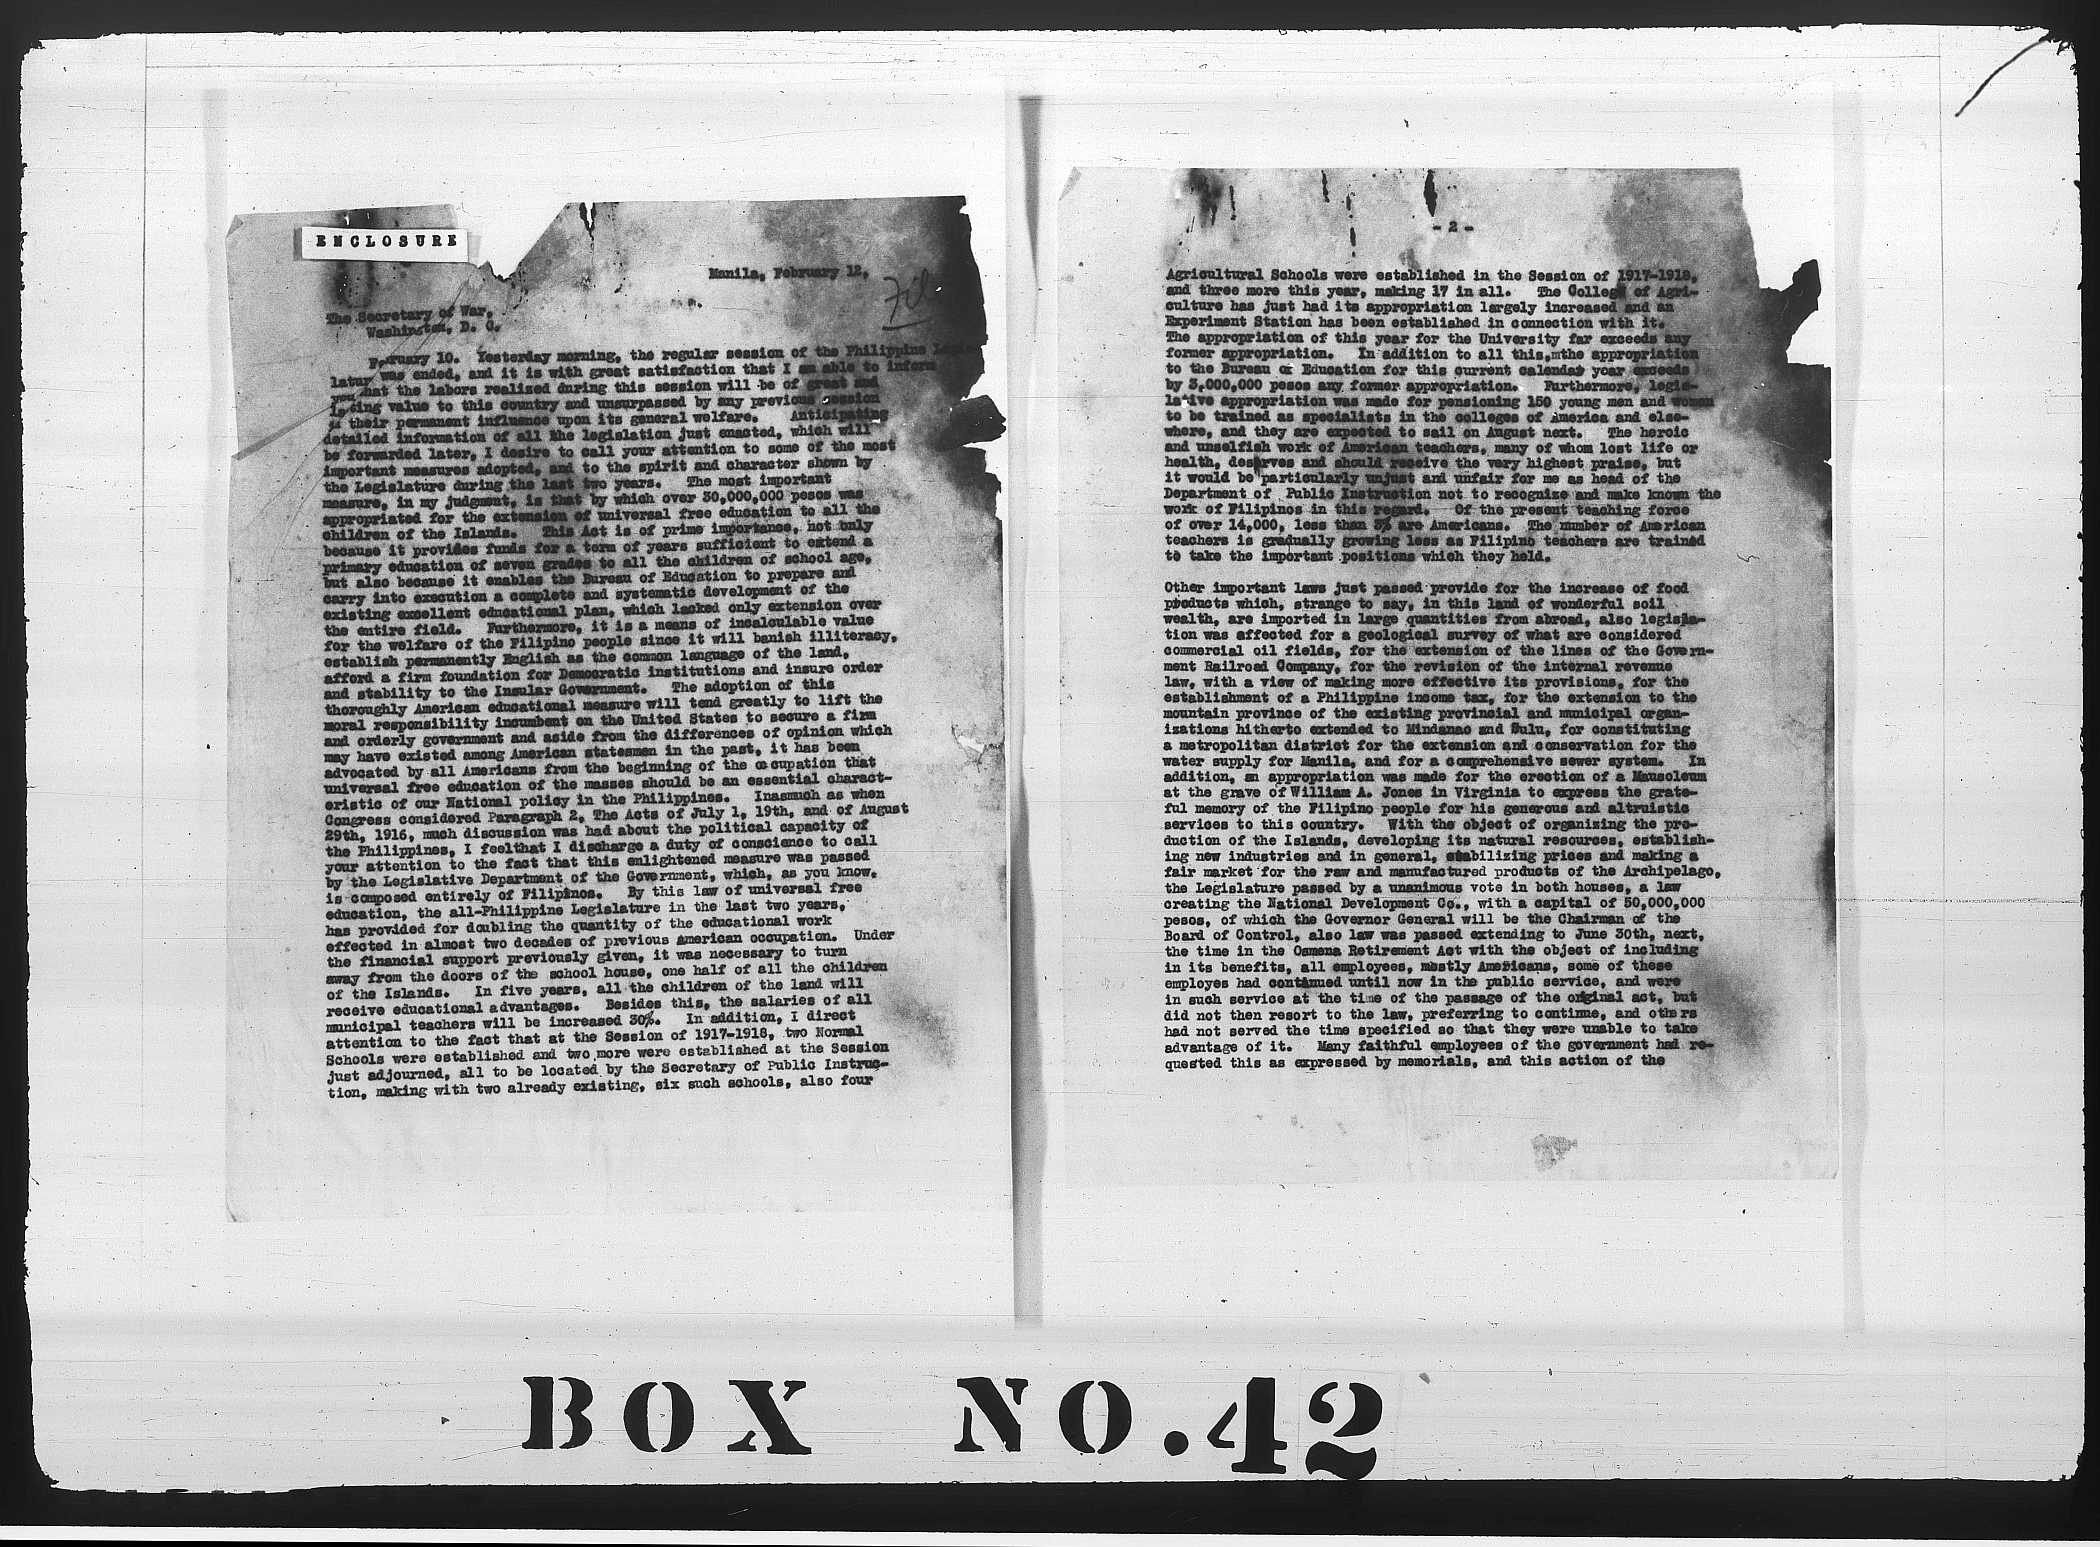 ENCLOSURE
Manila, February 12,
The Secretary of War,
Washington, D. C.
February 10. Yesterday morning, the regular session of the Philippine
latur was ended, and it is with great satisfaction that I am able to inform
you that the labors realized during this session will be of great and
lasting value to this country and unsurpassed by any previous session
in their permanent influence upon its general welfare. Anticipating
detailed information of all the legislation just enacted, which will
be forwarded later, I desire to call your attention to some of the most
important measures adopted, and to the spirit and character shown by
the Legislature during the last two years. The most important
measure, in my judgment, is that by which over 30,000,000 pesos was
appropriated for the extension of universal free education to all the
children of the Islands. This Act is of prime importance, not only
because it provides funds for a term of years sufficient to extend a
primary education of seven grades to all the children of school age,
but also because it enables the Bureau of Education to prepare and
carry into execution a complete and systematic development of the
existing excellent educational plan, which lacked only extension over
the entire field. Furthermore, it is a means of incalculable value
for the welfare of the Filipino people since it will banish illiteracy,
establish permanently English as the common language of the land,
afford a firm foundation for Democratic institutions and insure order
and stability to the Insular Government. The adoption of this
thoroughly American educational measure will tend greatly to lift the
moral responsibility incumbent on the United States to secure a firm
and orderly government and aside from the differences of opinion which
may have existed among American statesmen in the past, it has been
advocated by all Americans from the beginning of the occupation that
universal free education of the masses should be an essential charact-
eristic of our National policy in the Philippines. Inasmuch as when
Congress considered Paragraph 2, The Acts of July 1, 19th, and of August
29th, 1916, much discussion was had about the political capacity of
the Philippines, I feelthat I discharge a duty of conscience to call
your attention to the fact that this enlightened measure was passed
by the Legislative Department of the Government, which, as you know,
is composed entirely of Filipinos. By this law of universal free
education, the all-Philippine Legislature in the last two years,
has provided for doubling the quantity of the educational work
effected in almost two decades of previous American occupation. Under
the financial support previously given, it was necessary to turn
away from the doors of the school house, one half of all the children
of the Islands. In five years, all the children of the land will
receive educational advantages. Besides this, the salaries of all
municipal teachers will be increased 30%. In addition, I direct
attention to the fact that at the Session of 1917-1918, two Normal
Schools were established and two more were established at the Session
just adjourned, all to be located by the Secretary of Public Instruc-
tion, making with two already existing, six such schools, also four
- 2 -
Agricultural Schools were established in the Session of 1917-1918,
and three more this year, making 17 in all. The College of Agri-
culture has just had its appropriation largely increased and an
Experiment Station has been established in connection with it.
The appropriation of this year for the University far exceeds any
former appropriation. In addition to all this,mthe appropriation
to the Bureau of Education for this current calendar year exceeds
by 3,000,000 pesos any former appropriation. Furthermore, legis-
lative appropriation was made for pensioning 150 young men and women
to be trained as specialists in the colleges of America and else-
where, and they are expected to sail on August next. The heroic
and unselfish work of American teachers, many of whom lost life or
health, deserves and should receive the very highest praise, but
it would be particularly unjust and unfair for me as head of the
Department of Public Instruction not to recognize and make known the
work of Filipinos in this regard. Of the present teaching force
of over 14,000, less than 3% are Americans. The number of American
teachers is gradually growing less as Filipino teachers are trained
to take the important positions which they held.
Other important laws just passed provide for the increase of food
products which, strange to say, in this land of wonderful soil
wealth, are imported in large quantities from abroad, also legisla-
tion was affected for a geological survey of what are considered
commercial oil fields, for the extension of the lines of the Govern-
ment Railroad Company, for the revision of the internal revenue
law, with a view of making more effective its provisions, for the
establishment of a Philippine income tax, for the extension to the
mountain province of the existing provincial and municipal organ-
izations hitherto extended to Mindanao and Sulu, for constituting
a metropolitan district for the extension and conservation for the
water supply for Manila, and for a comprehensive sewer system. In
addition, an appropriation was made for the erection of a Mausoleum
at the grave of William A. Jones in Virginia to express the grate-
ful memory of the Filipino people for his generous and altruistic
services to this country. With the object of organizing the pro-
duction of the Islands, developing its natural resources, establish-
ing new industries and in general, stabilizing prices and making a
fair market for the raw and manufactured products of the Archipelago,
the Legislature passed by a unanimous vote in both houses, a law
creating the National Development Co., with a capital of 50,000,000
pesos, of which the Governor General will be the Chairman of the
Board of Control, also law was passed extending to June 30th, next,
the time in the Osmena Retirement Act with the object of including
in its benefits, all employees, mostly Americans, some of these
employes had continued until now in the public service, and were
in such service at the time of the passage of the original act, but
did not then resort to the law, preferring to continue, and others
had not served the time specified so that they were unable to take
advantage of it. Many faithful employees of the government had re-
quested this as expressed by memorials, and this action of the
BOX NO. 42